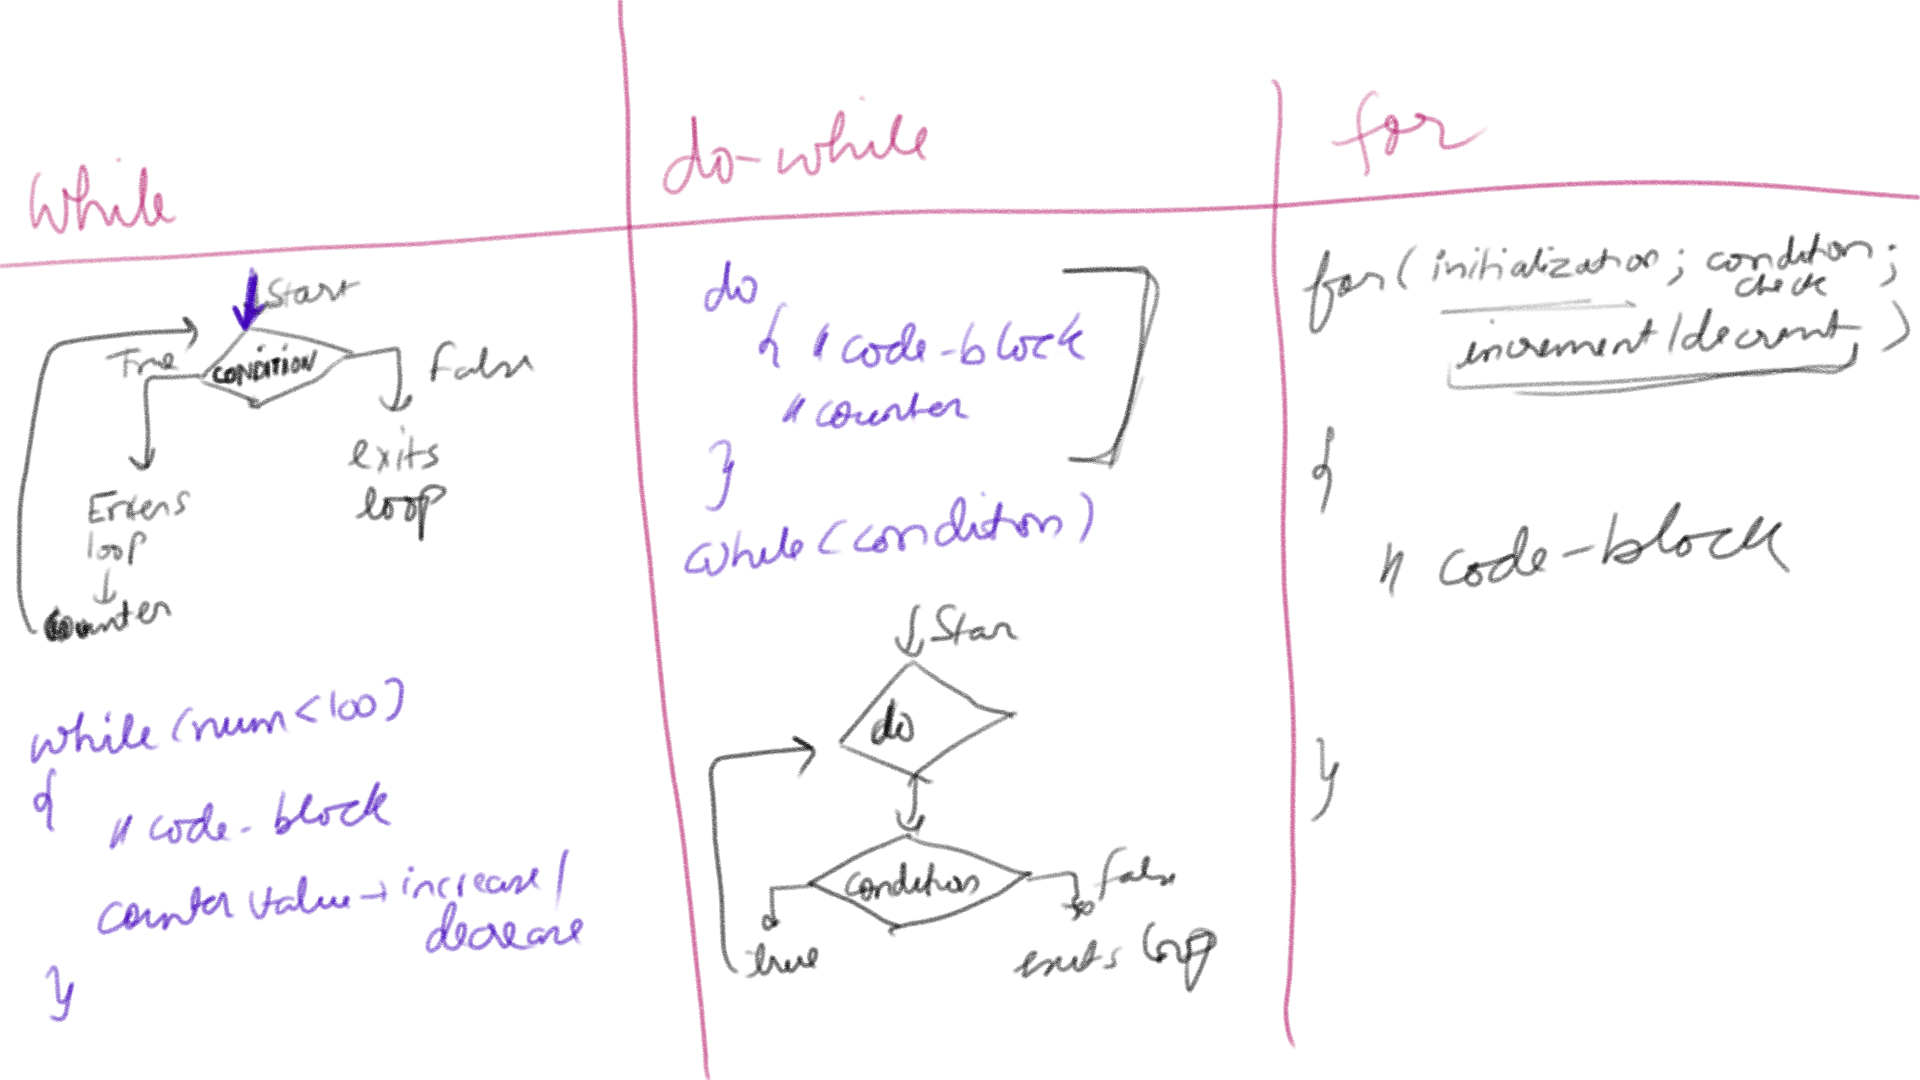 while
Start
True
CONDITION
False
exits
loop
Enters
loop
counter
while (num<100)
{
// code-block
counter value → increase /
decrease
}
do-while
do
{ // code-block
// counter
}
while (condition)
Star
do
condition
False
true
exits loop
for
for ( initialization ; condition ;
check
increment / decrement )
{
// code-block
}